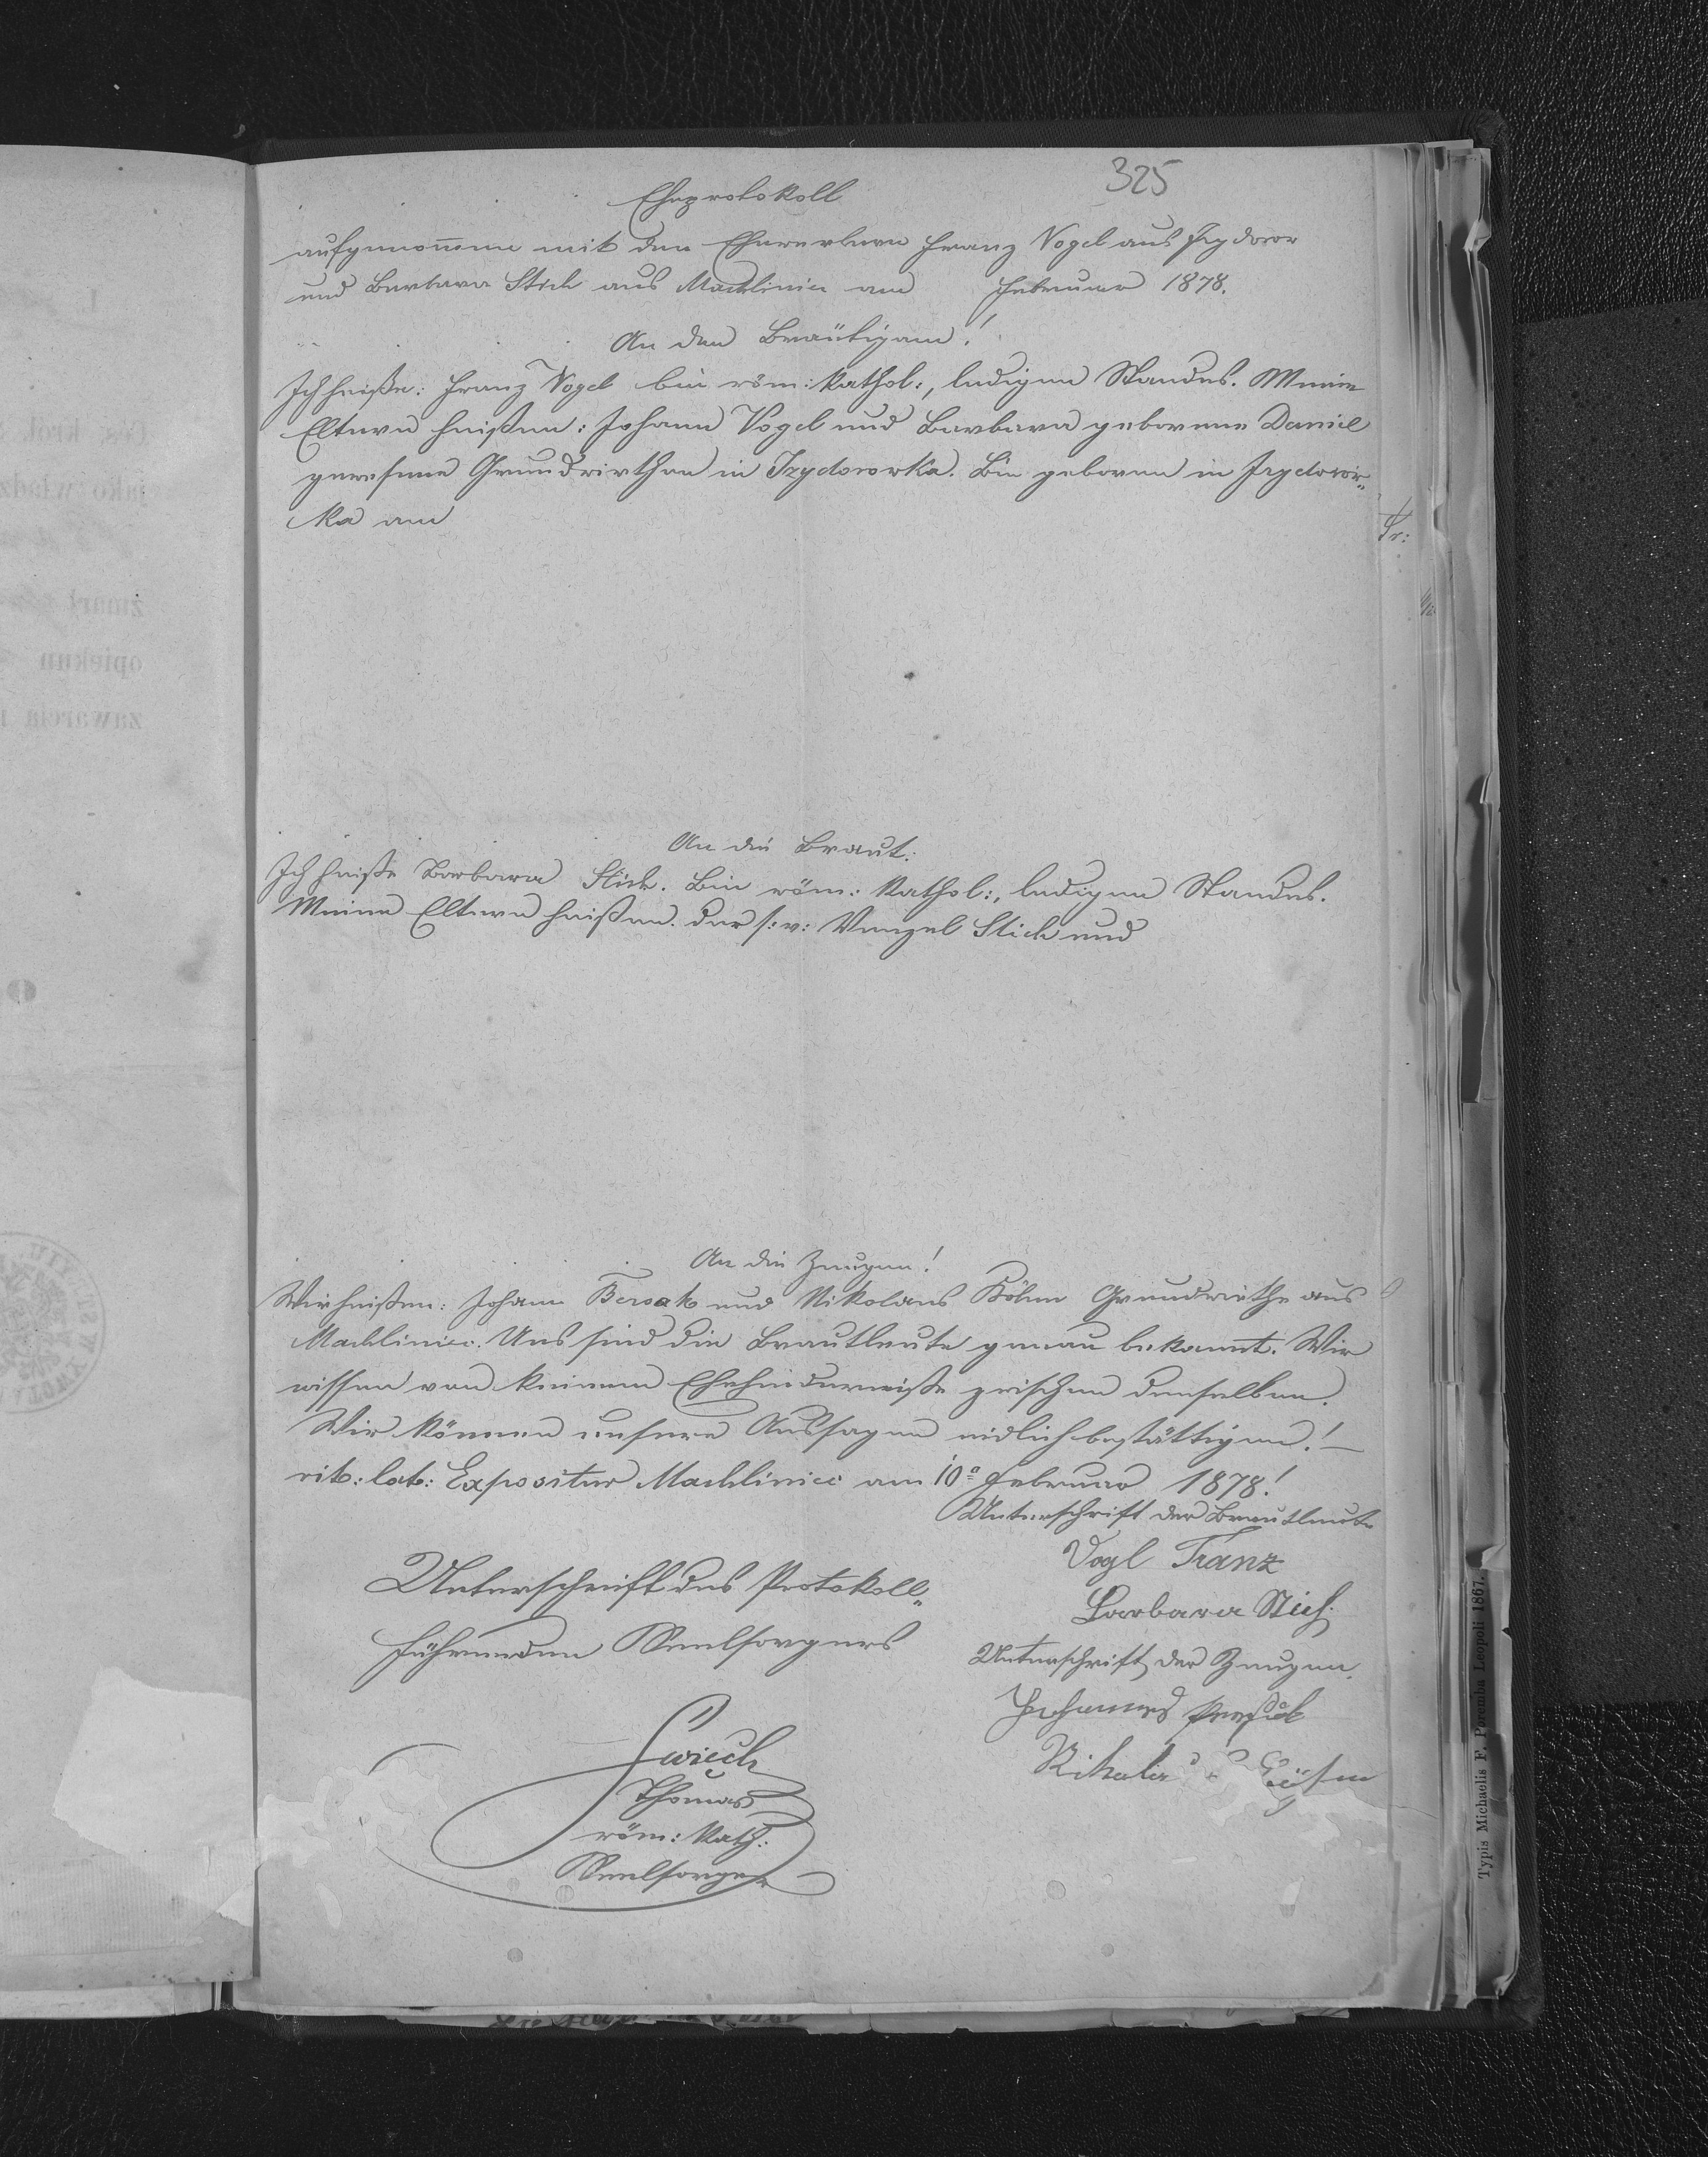 325
Eheprotokoll
aufgenom̄en mit den Ehewerbern Franz Vogel aus Izydoror
und Barbara Stich aus Machliniec am Februar 1878.
An den Bräutigam!
Ich heiße: Franz Vogel bin röm: kathol:, ledigen Standes. Meine
Eltern heißen: Johann Vogel und Barbara geborene Daniel
gewesene Grundwirthen in Izydorowka. Bin geboren in Izydorow„
ka am
An die Braut:
Ich heiße Barbara Stich. Bin röm: kathol:, ledigen Standes.
Meine Eltern heißen. der s: v: Wenzel Stich und
An die Zeugen!
Wir heißen: Johann Bersak und Nikolaus Böhm Grundwirthe aus
Machliniec. Uns sind die Brautleute genau bekannt. Wir
wissen von keinem Ehehinderniße zwischen denselben.
Wir können unsere Aussagen eidlich bestättigen! —
rit: lat: Expositur Machliniec am 10ª Februar 1878!
Unterschrift der Brautleute
Vogl Franz
Barbara Stich
Unterschrift des Protokoll„
führenden Seelsorgers
Unterschrift der Zeugen.
Johannes
Swiech
Thomas
röm: Kath:
Seelsorger
Typis Michaelis F. Poremba Leopoli 1867.